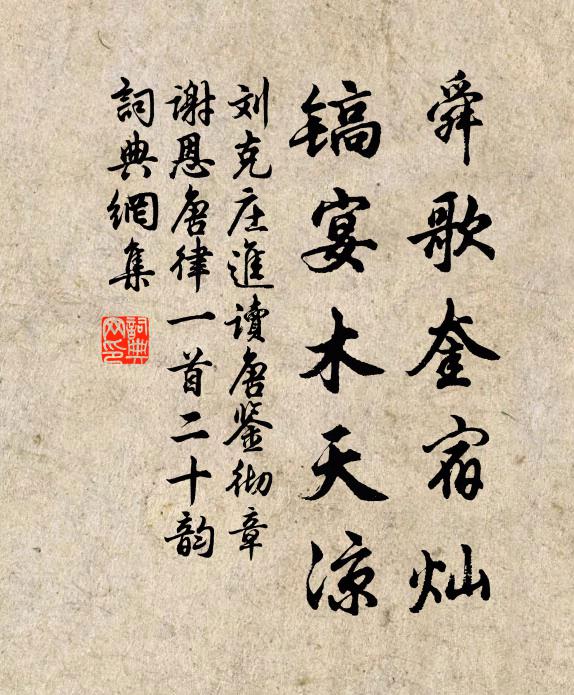 舜歌奎宿灿
镐宴木天凉
刘克庄進讀唐鉴彻章
谢恩唐律一首二十韵
詞典網集
詞典网印